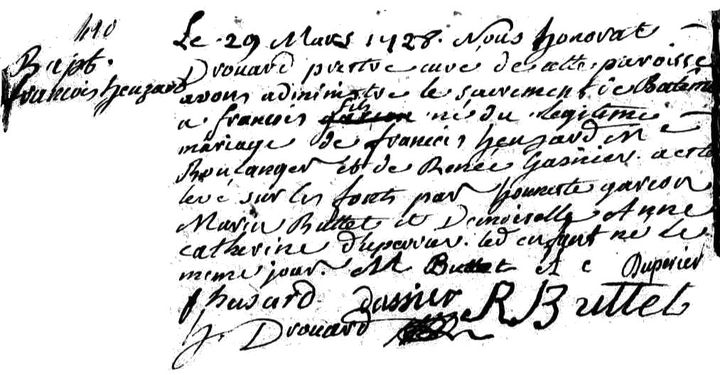 410
Bapt.
francois heuzard
Le 29 Mars 1728. Nous honorat
Drouard prestre curé de cette paroisse
avons administre le sacrement de Bateme
a francois fils né du Legitime
mariage de francois heuzard Me
Boulanger et de Renée Gasnier. a esté
levé sur les fonts par honneste garcon
Marin Buttet et Demoiselle Anne
catherine duperier. led enfant né le
meme jour. M Buttet A c Duperier
f husard dasnier R Buttet
h. Drouard